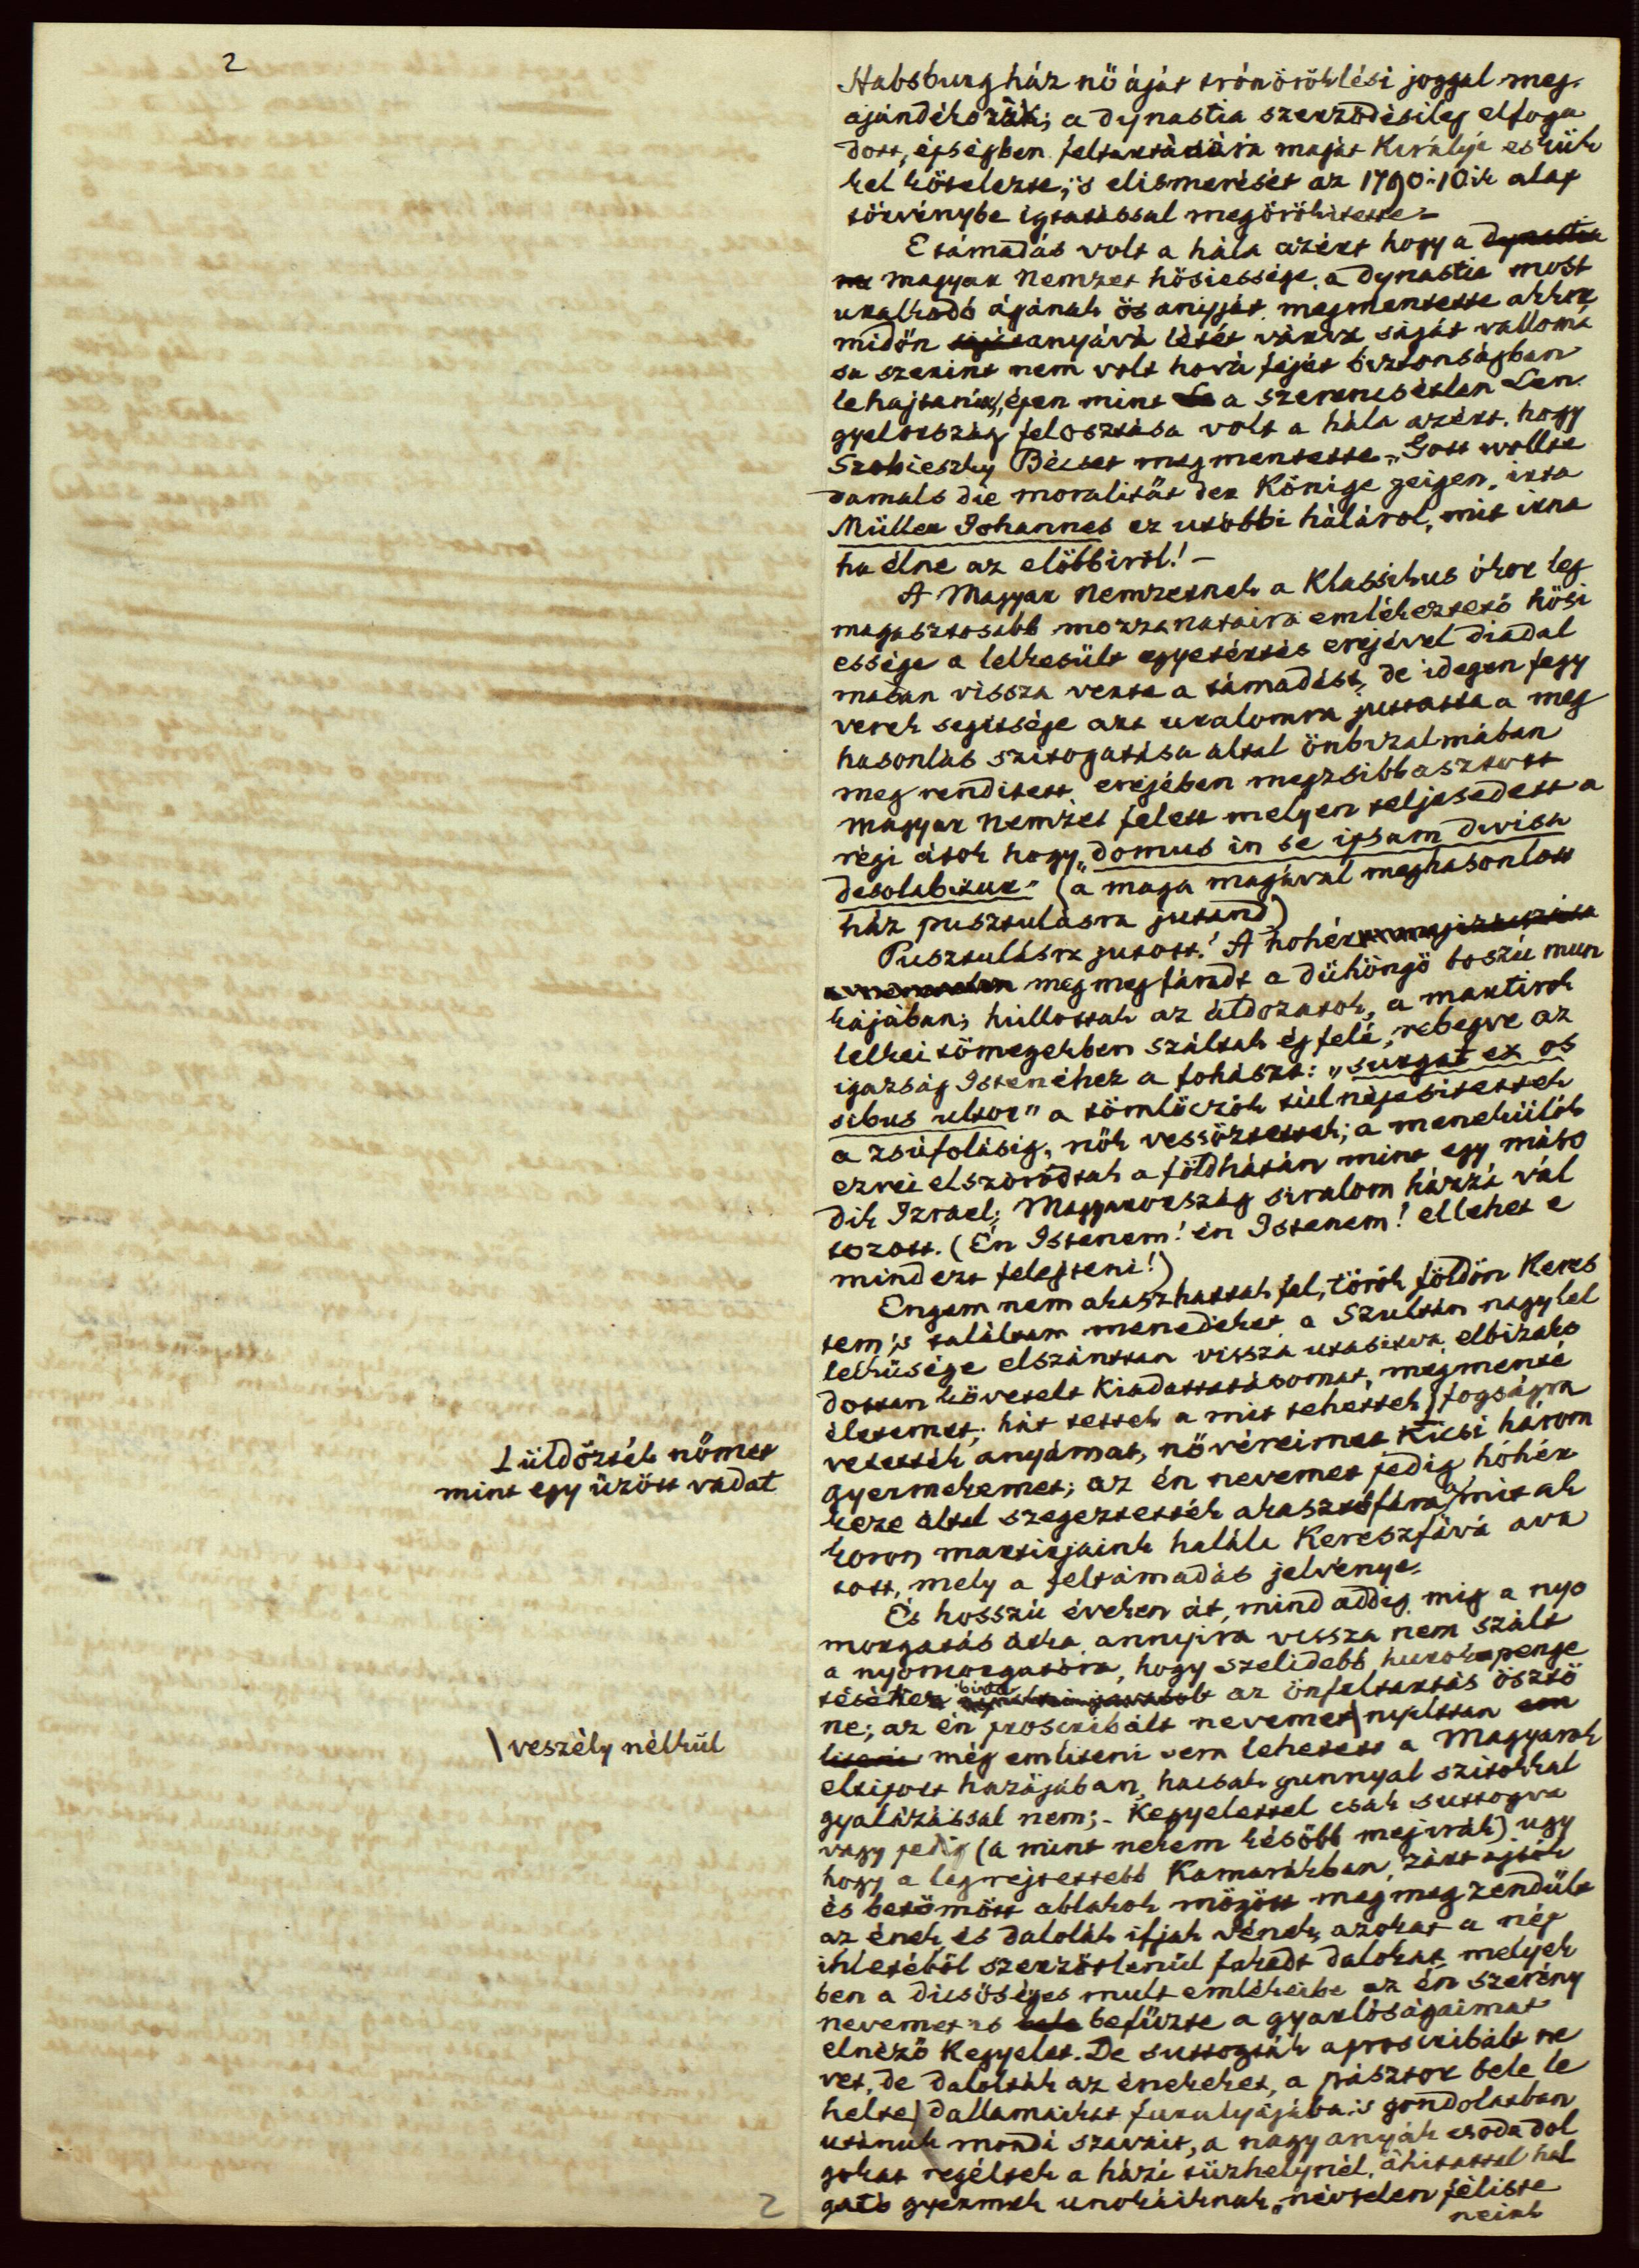 2
Habsburg ház nő áját trónöröklési joggal meg-
ajándékozák; a dynastia szerződésileg elfoga
dott, épségben feltartására magát Királyi eskük
kel kötelezte, 's elismerését az 1790:10ik alap
törvénybe igtatással megörökítette.
E támadás volt a hála azért hogy a dynastia
magyar nemzet hősiessége, a dynastia most
uralkodó ágának ős anyját megmentette akkor
midőn anyává létét várva saját vallomá
sa szerint nem volt hová fejét biztonságban
lehajtania, épen mint a szerencsétlen Len-
gyelország felosztása volt a hála azért, hogy
Szobieszky Bécset megmentette. „Gott wollte
damals die moralität der Könige zeigen, irta
Müller Johannes ez utobbi háláról, mit irna
ha élne az előbbiről! –
A Magyar Nemzetnek a Klassikus ókor leg
magasztosabb mozzanataira emlékeztető hősi
essége a lelkesült egyetértés erejével diadal
masan vissza verte a támadást, de idegen fegy
verek segitsége azt uralomra juttatta a meg
hasonlás szitogatása által önbizalmában
meg rendített, erejében megzsibbasztott
magyar nemzet felett melyen teljesedett a
régi átok hogy „domus in se ipsam divisa
desolabitur" (a maga magával meghasonlott
ház pusztulásra jutand)
Pusztulásra jutott! A hohér
megmegfáradt a dühöngő boszú mun
kájában; hullottak az áldozatok, a martirok
lelkei tömegekben szálltak ég felé, rebegve az
igazság Istenéhez a fohászt: „surgat ex os
sibus ultor" a tömlöczök túlnépesitettek
a zsúfolásig, nők vessöztettek; a menekülők
ezrei elszóródtak a földhátán mint egy máso
dik Izrael; Magyarország siralom házzá vál
tozott. (Én Istenem! én Istenem! ellehet e
mindezt felejteni!)
Engem nem akaszhattak fel, török földön Keres
tem 's találtam menedéket a Szultán nagylel
lelküsége elszántan vissza utasitva elbizako
dottan követelt kiadattatásomat, megmenté
életemet; hát tettek a mit tehettek; fogságra
vetették anyámat, nővéreimet Kicsi három
gyermekemet; az én nevemet pedig hóhér
keze által szegeztették akasztófára, a mit ak
koron martirjaink halála Keresztfává ava
tott, mely a feltámadás jelvénye.
Lüldözték nőmet
mint egy űzött vadat
És hosszú éveken át, mind addig, mig a nyo
morgatás átka annyira vissza nem szált
a nyomorgatóira, hogy szelidebb hurok penge
téséhez birta az önfeltartás ösztö
ne; az én proscribált nevemet nyiltan em
liteni még emliteni sem lehetett a Magyarok
eltiport hazájában, hacsak gunnyal szitokkal
gyalázással nem; – Kegyelettel csak suttogva
\ veszély nélkül
vagy pedig (a mint nekem később megirák) ugy
hogy a legrejtettebb Kamarákban, zárt ajtók
és betömött ablakok mögött megmegzendült
az ének és dalolák ifjak vének, azokat a nép
ihletéből szerzőtlenül fakadt dalokat, melyek
ben a dicsőséges mult emlékeibe az én szerény
nevemet is bele befűzte a gyarlóságaimat
elnéző Kegyelet. De suttogták a proscribált ne
vet, de dalolták az énekeket, a pásztor bele le
helte dallamaikat furulyájába 's gondolatban
utánuk mondá szavait, a nagy anyák csoda dol
gokat regéltek a házi tűzhelynél, áhitattal hal
gató gyermek unokáiknak, névtelen féliste
neink
2